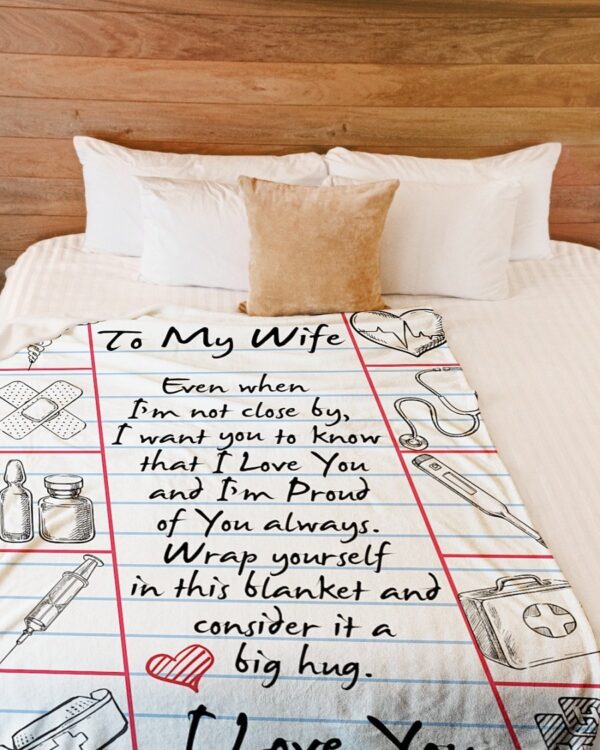 To My Wife
Even when
I'm not close by,
I want you to know
that I Love You
and I'm Proud
of You always.
Wrap yourself
in this blanket and
consider it a
big hug.
I Love You